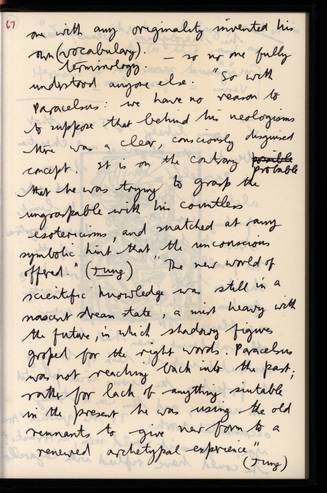 67
one with any originality invented his
own (vocabulary).
terminology. – so no one fully
understood anyone else. "So with
Paracelsus: we have no reason to
to suppose that behind his neologisms
there was a clear, consciously disguised
concept. It is on the contrary possible
probable
that he was trying to grasp the
ungraspable with his countless
esotericisms, and snatched at any
symbolic hint that the unconscious
offered." (Jung) "The new world of
scientific knowledge was still in a
nascent dream state, a mist heavy with
the future, in which shadowy figures
groped for the right words. Paracelsus
was not reaching back into the past;
rather for lack of anything suitable
in the present he was using the old
remnants to give new form to a
renewed archetypal experience"
(Jung)